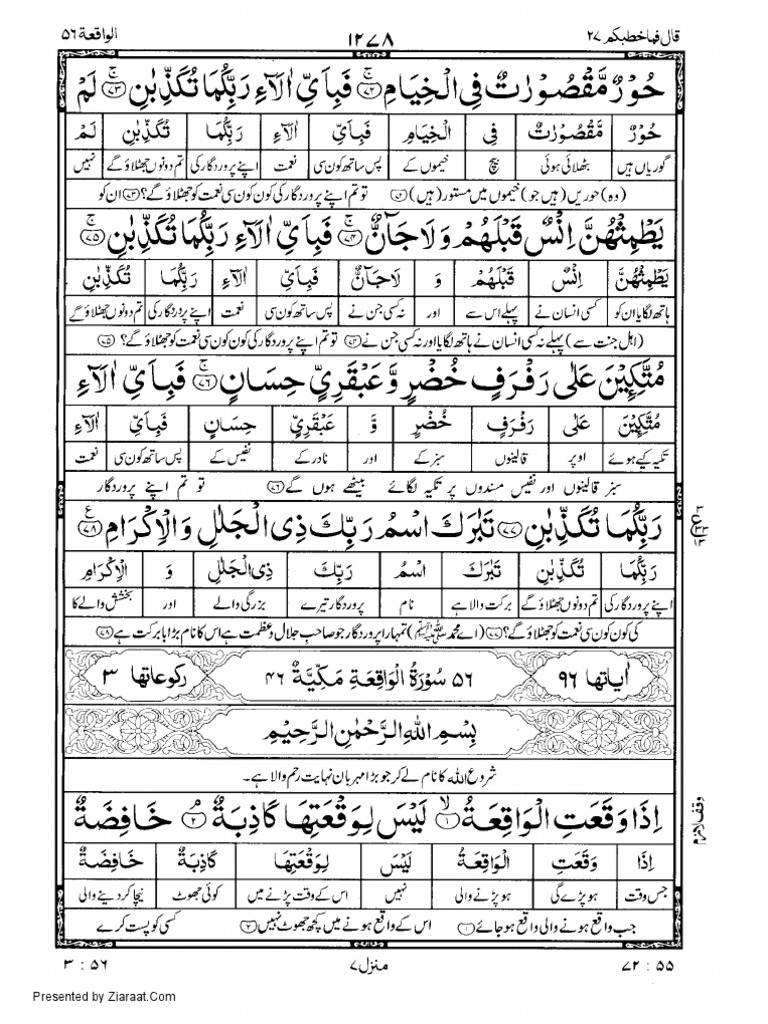 قال فما خطبکم ۲۷
۱۲۷۸
الواقعة ۵۶
حُوْرٌ مَّقْصُوْرٰتٌ فِی الْخِیَامِ ﴿۷۲﴾ فَبِاَیِّ اٰلَآءِ رَبِّكُمَا تُكَذِّبٰنِ ﴿۷۳﴾ لَمْ
حُوْرٌ مَّقْصُوْرٰتٌ فِی الْخِیَامِ فَبِاَیِّ اٰلَآءِ رَبِّكُمَا تُكَذِّبٰنِ لَمْ
گوریاں ہیں بٹھلائی ہوئی بیچ خیموں کے پس ساتھ کون سی نعمت اپنے پروردگار کی تم دونوں جھٹلاؤ گے نہیں
(وہ) حوریں (ہیں جو) خیموں میں مستور (ہیں) ﴿۷۲﴾ تو تم اپنے پروردگار کی کون کون سی نعمت کو جھٹلاؤ گے؟ ﴿۷۳﴾ ان کو
یَطْمِثْهُنَّ اِنْسٌ قَبْلَهُمْ وَلَا جَآنٌّ ﴿۷۴﴾ فَبِاَیِّ اٰلَآءِ رَبِّكُمَا تُكَذِّبٰنِ ﴿۷۵﴾
یَطْمِثْهُنَّ اِنْسٌ قَبْلَهُمْ وَ لَاجَآنٌّ فَبِاَیِّ اٰلَآءِ رَبِّكُمَا تُكَذِّبٰنِ
ہاتھ لگایا ان کو کسی انسان نے پہلے اس سے اور نہ کسی جن نے پس ساتھ کون سی نعمت اپنے پروردگار کی تم دونوں جھٹلاؤ گے
(اہل جنت سے) پہلے نہ کسی انسان نے ہاتھ لگایا اور نہ کسی جن نے ﴿۷۴﴾ تو تم اپنے پروردگار کی کون کون سی نعمت کو جھٹلاؤ گے؟ ﴿۷۵﴾
مُتَّكِـِٕیْنَ عَلٰی رَفْرَفٍ خُضْرٍ وَّعَبْقَرِیٍّ حِسَانٍ ﴿۷۶﴾ فَبِاَیِّ اٰلَآءِ
مُتَّكِـِٕیْنَ عَلٰی رَفْرَفٍ خُضْرٍ وَّ عَبْقَرِیٍّ حِسَانٍ فَبِاَیِّ اٰلَآءِ
تکیہ کیے ہوئے اوپر قالینوں سبز کے اور نادر کے نفیس کے پس ساتھ کون سی نعمت
سبز قالینوں اور نفیس مسندوں پر تکیہ لگائے بیٹھے ہوں گے ﴿۷۶﴾ تو تم اپنے پروردگار
رَبِّكُمَا تُكَذِّبٰنِ ﴿۷۷﴾ تَبٰرَكَ اسْمُ رَبِّكَ ذِی الْجَلٰلِ وَالْاِكْرَامِ ﴿۷۸﴾
رَبِّكُمَا تُكَذِّبٰنِ تَبٰرَكَ اسْمُ رَبِّكَ ذِی الْجَلٰلِ وَ الْاِكْرَامِ
اپنے پروردگار کی تم دونوں جھٹلاؤ گے برکت والا ہے نام پروردگار تیرے بزرگی والے اور بخشش والے کا
کی کون کون سی نعمت کو جھٹلاؤ گے؟ ﴿۷۷﴾ (اے محمد ﷺ) تمہارا پروردگار جو صاحب جلال و عظمت ہے اس کا نام بڑا با برکت ہے ﴿۷۸﴾
اٰیاتها ۹۶ ۵۶ سُوْرَةُ الْوَاقِعَةِ مَكِّیَّةٌ ۴۶ رکوعاتها ۳
بِسْمِ اللّٰهِ الرَّحْمٰنِ الرَّحِیْمِ
شروع اللہ کا نام لے کر جو بڑا مہربان نہایت رحم والا ہے۔
اِذَا وَقَعَتِ الْوَاقِعَةُ ﴿۱﴾ لَیْسَ لِوَقْعَتِهَا كَاذِبَةٌ ﴿۲﴾ خَافِضَةٌ
اِذَا وَقَعَتِ الْوَاقِعَةُ لَیْسَ لِوَقْعَتِهَا كَاذِبَةٌ خَافِضَةٌ
جس وقت ہو پڑے گی ہو پڑنے والی نہیں اس کے وقت پڑنے میں کوئی جھوٹ نیچا کر دینے والی
جب واقع ہونے والی واقع ہو جائے ﴿۱﴾ اس کے واقع ہونے میں کچھ جھوٹ نہیں ﴿۲﴾ کسی کو پست کرے
وقف لازم
۵۵ : ۷۲
منزل ۷
۵۶ : ۳
Presented by Ziaraat.Com